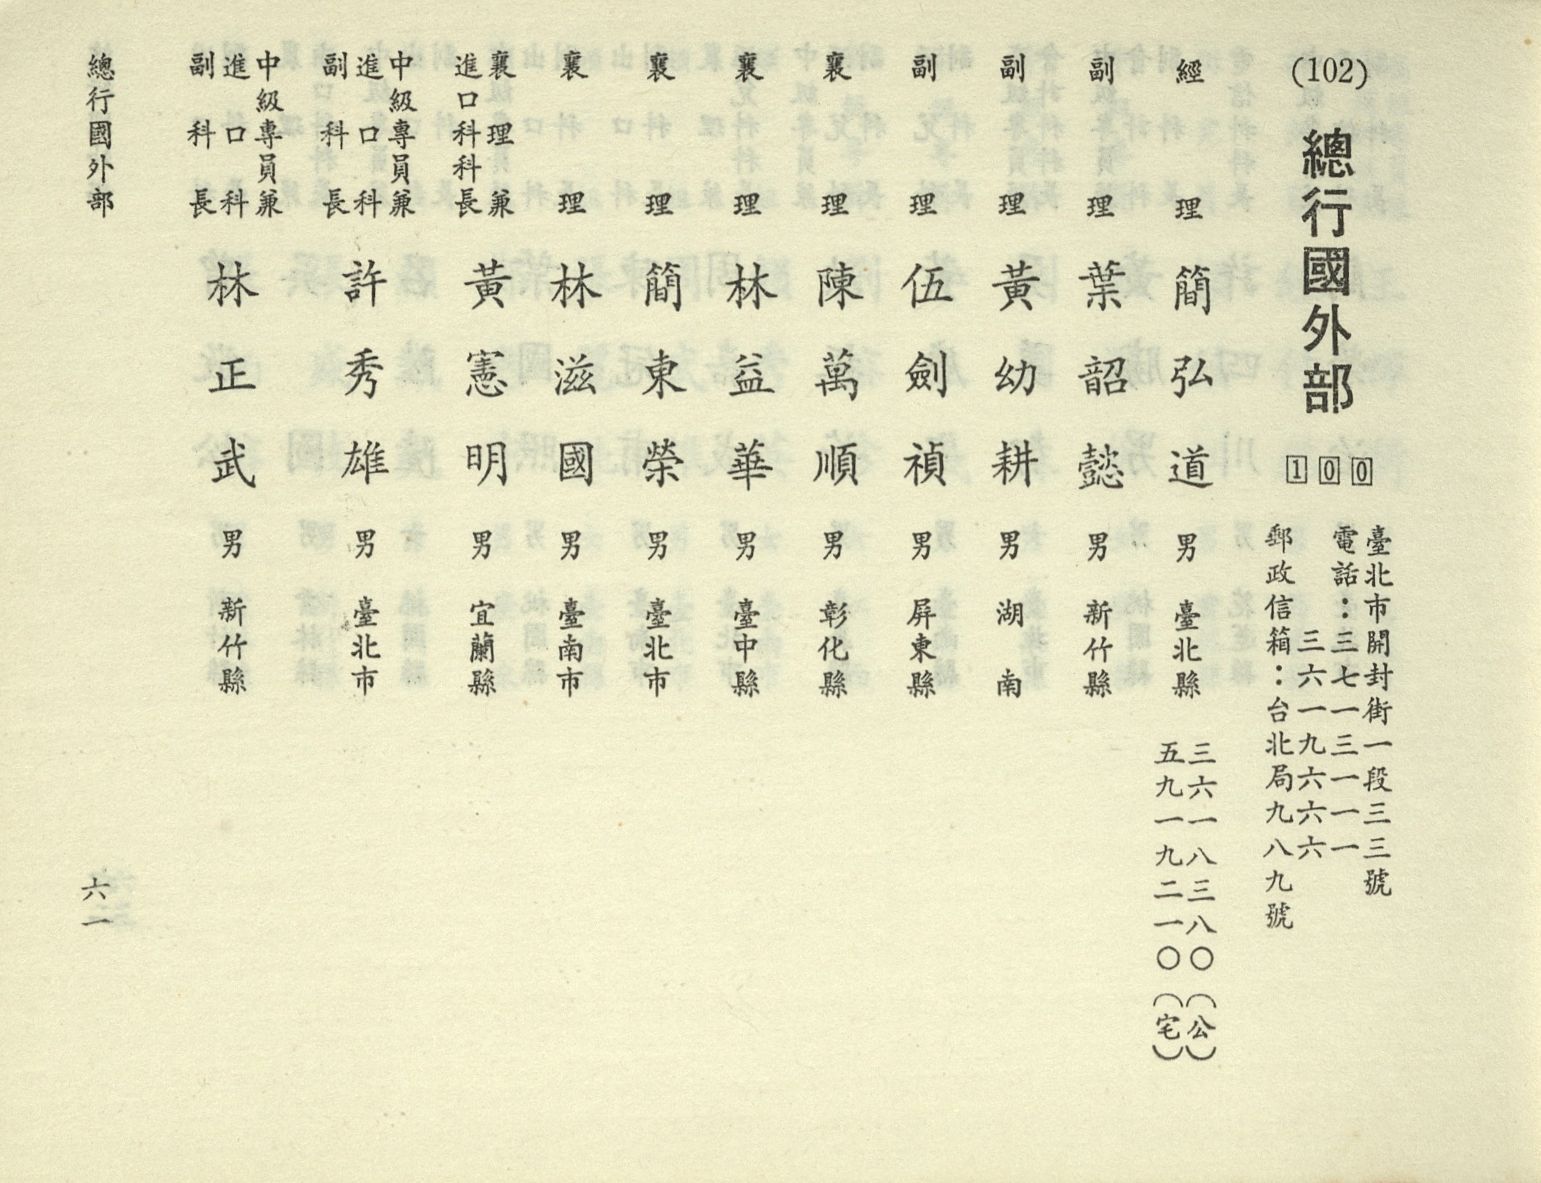 (102)
總行國外部
100
臺北市開封街一段三三號
電話：三七一三一一一
三六一九六六六
郵政信箱：台北局九八九號
經理 簡弘道 男 臺北縣
三六一八三八〇（公）
五九一九二一〇（宅）
副理 葉韶懿 男 新竹縣
副理 黃幼耕 男 湖南
副理 伍劍禎 男 屏東縣
襄理 陳萬順 男 彰化縣
襄理 林益華 男 臺中縣
襄理 簡東榮 男 臺北市
襄理 林滋國 男 臺南市
襄理兼
進口科科長
黃憲明 男 宜蘭縣
中級專員兼
進口科
副科長
許秀雄 男 臺北市
中級專員兼
進口科
副科長
林正武 男 新竹縣
總行國外部
六一